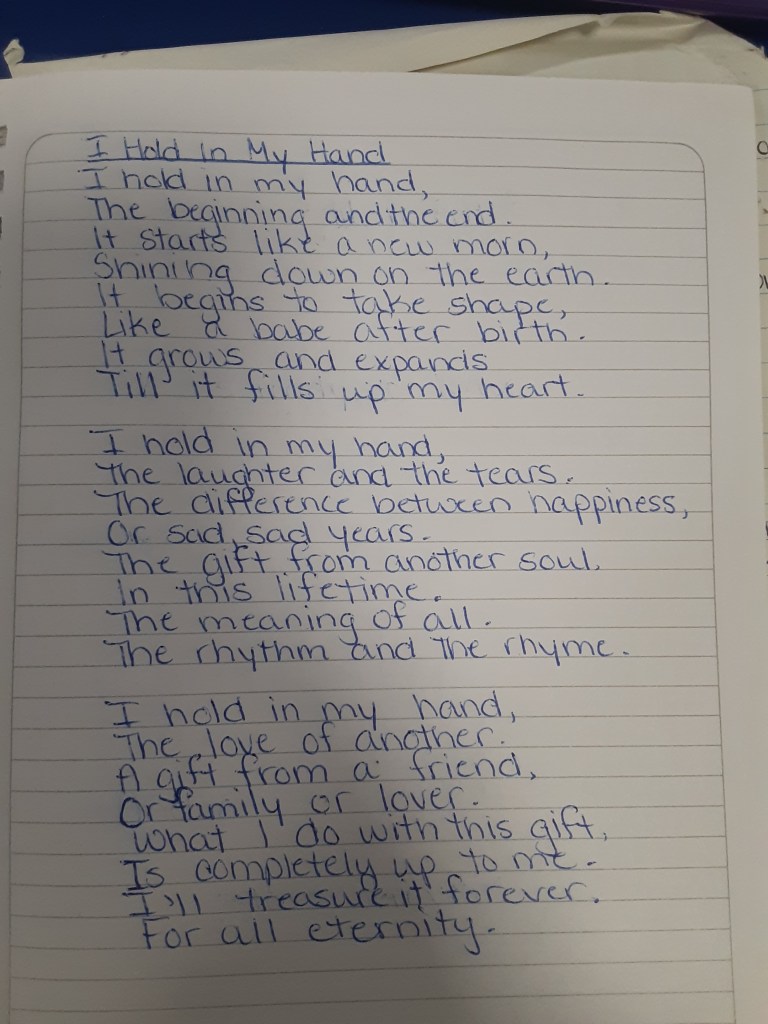 I Hold In My Hand
I hold in my hand,
The beginning and the end.
It starts like a new morn,
Shining down on the earth.
It begins to take shape,
Like a babe after birth.
It grows and expands
Till it fills up my heart.
I hold in my hand,
The laughter and the tears.
The difference between happiness,
Or sad, sad years.
The gift from another soul,
In this lifetime.
The meaning of all.
The rhythm and the rhyme.
I hold in my hand,
The love of another.
A gift from a friend,
Or family or lover.
What I do with this gift,
Is completely up to me.
I'll treasure it forever.
For all eternity.